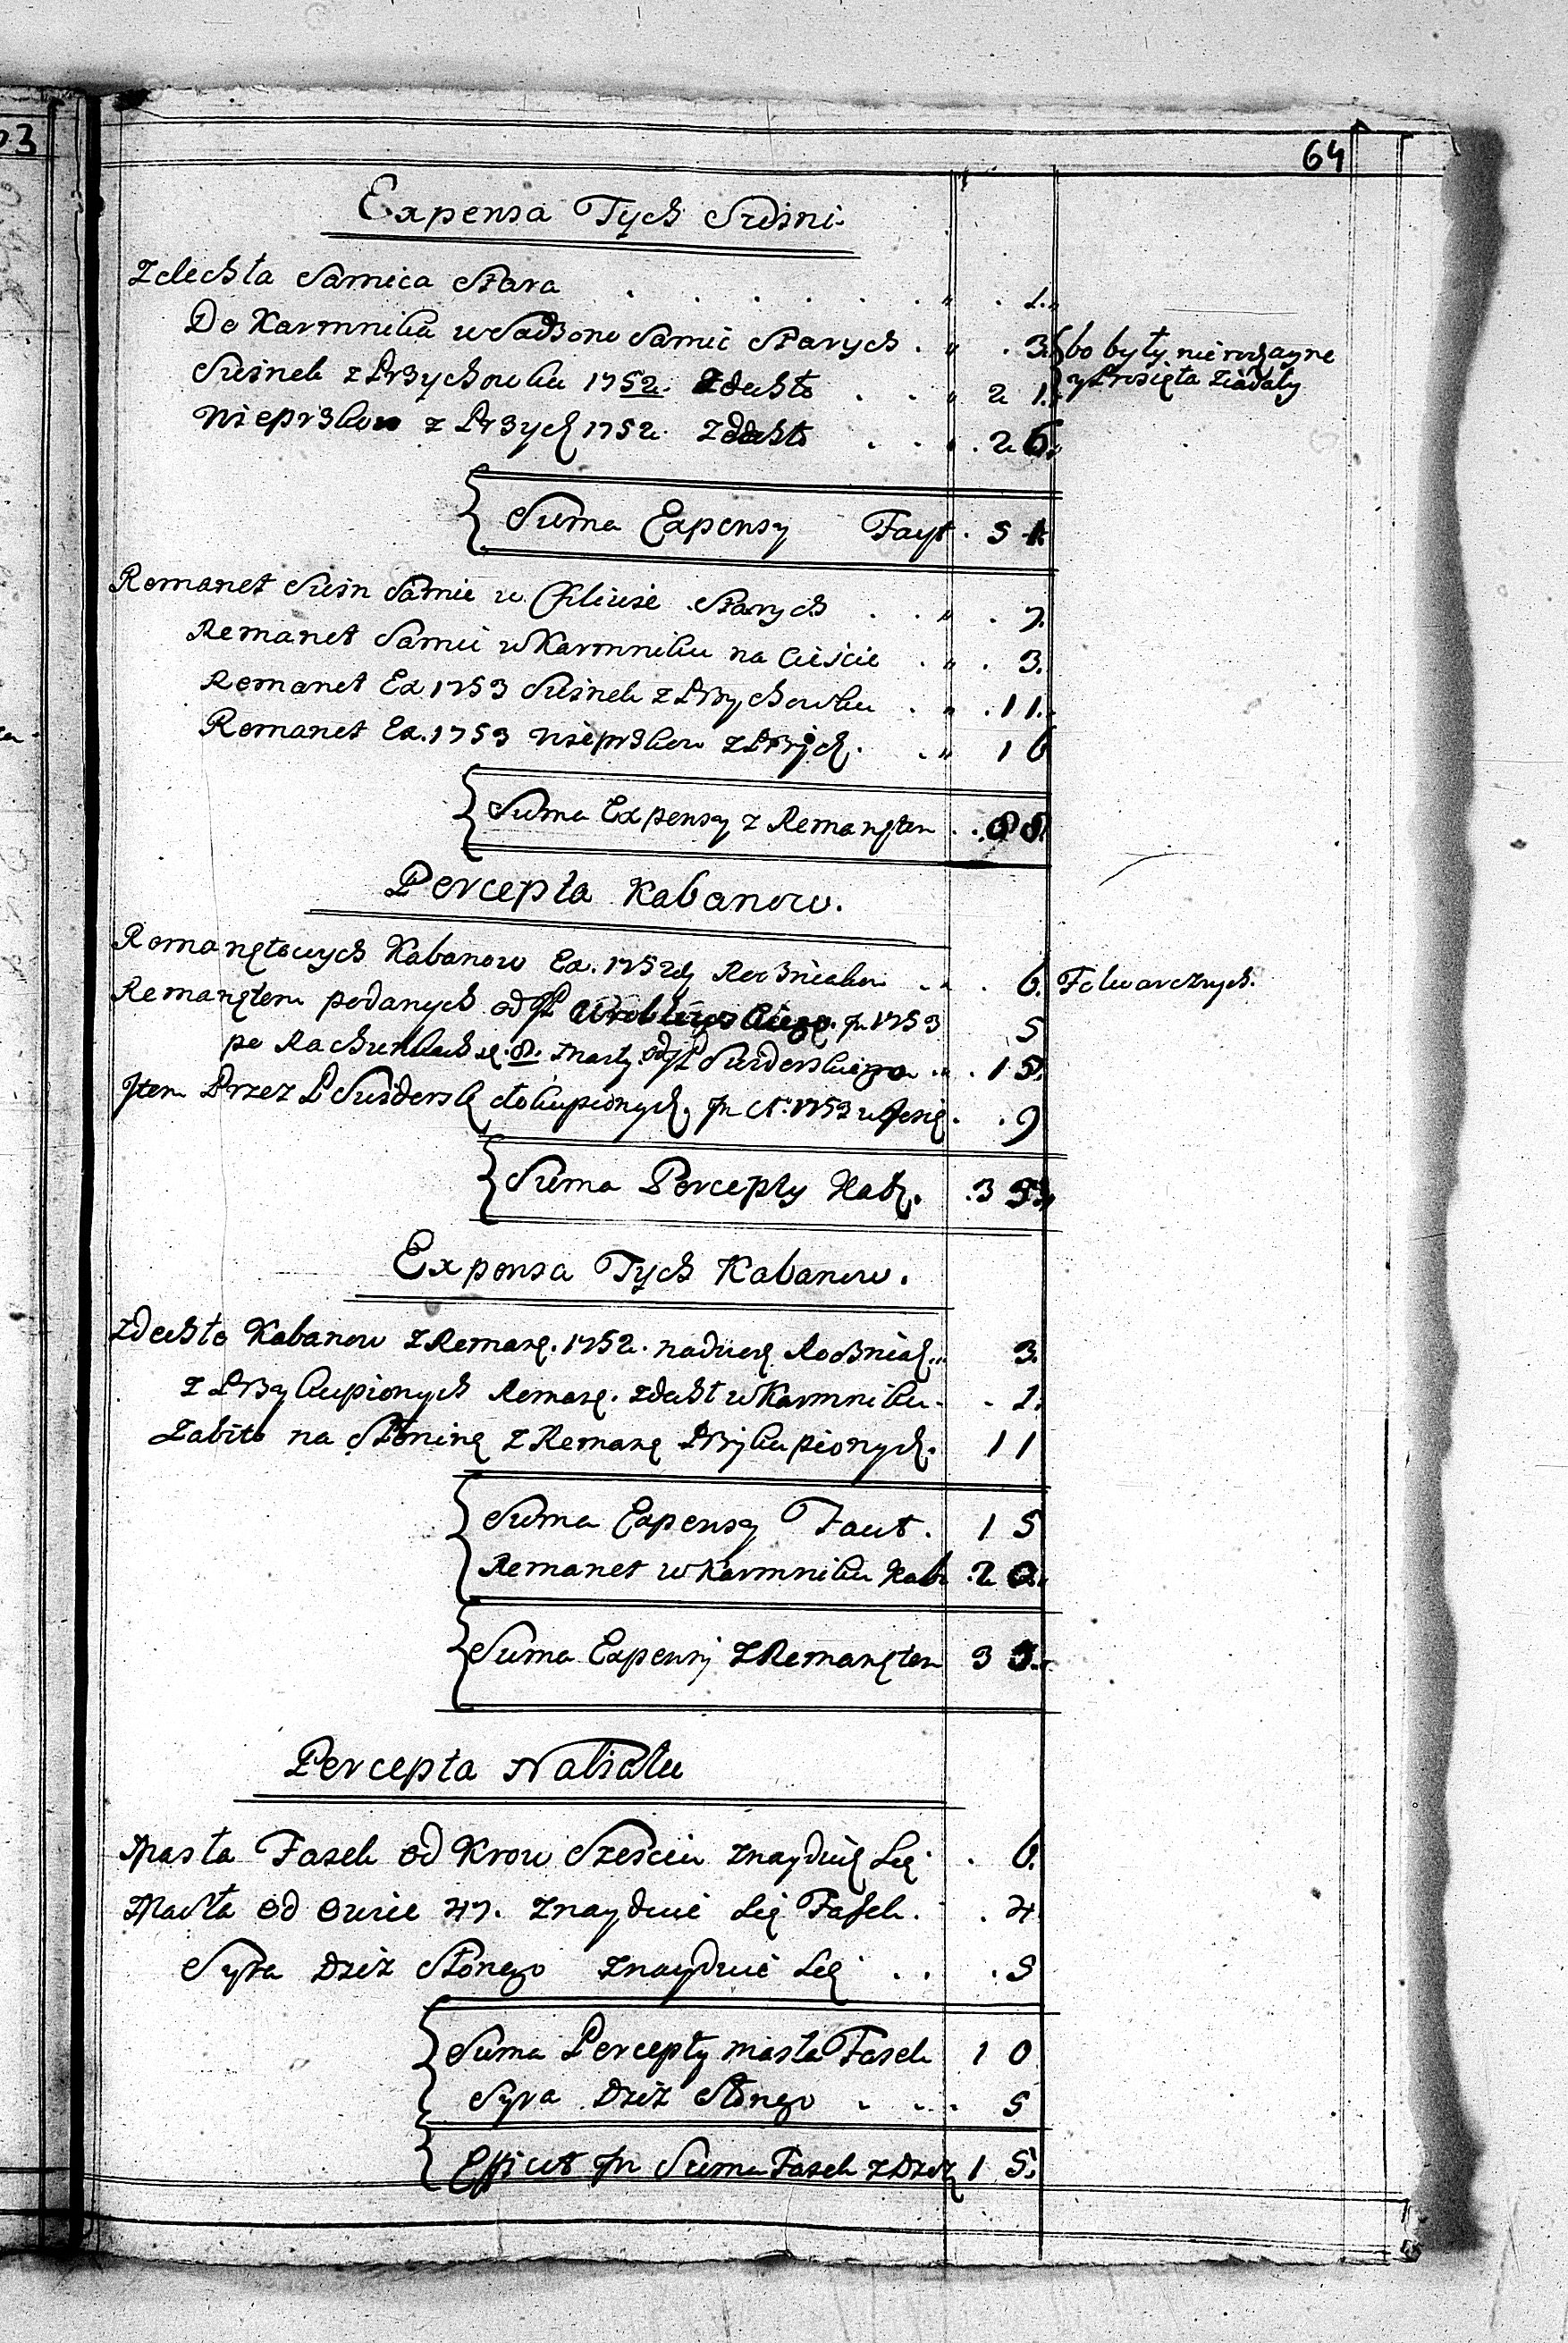 64
Expensa Tych Swini
Zdechła Samica Stara . . . . . . " . 1.
Do Karmnika wsadzono Samic Starych . " . 3. bo były nierodzayne
Swinek z Przychowku 1752. Zdechło . . " 2 1. y Prosięta ziadały
Wieprzkow z Przych 1752. Zdechło . . . 2 6.
Suma Expensy Facyt . 5 1.
Remanet Swin Samic w Chliwie Starych . . " . 7.
Remanet Samic w Karmniku na Cieście . " . 3.
Remanet Ex 1753 Swinek z Przychowku . " . 11.
Remanet Ex. 1753 Wieprzkow z Przych. . " 1 6
Suma Expensy z Remanętem . . 88.
Percepta Kabanow.
Remanętowych Kabanow Ex. 1752 Rożniakow . . . 6. Folwarcznych.
Remanętem podanych od 1753 5
po Rachunkach od Swiderskiego " . 15.
Item Przez P Swidersk dokupionych. 1753 . . 9
Suma Percepty Kab. . 3 5.
Expensa Tych Kabanow.
Zdechło Kabanow z Reman. 1752. Rożniak " 3.
z Przykupionych Reman. zdechł w Karmniku . . 1.
Zabito na Słoninę z Reman Przykupionych. 11
Suma Expensy Facit . 1 5
Remanet w Karmniku Kab . 2 0.
Suma Expensy z Remanętem 3 5.
Percepta Nabiału
Masła Fasek od Krow Sześciu znayduie się . . 6.
Masła od Owiec 47. znayduie się Fasek . . 4.
Syra Dzież Słonego znayduie się . . . 5
Suma Percepty masła Fasek 1 0
Syra Dzież Słonego . . . . 5
Efficit in Suma Fasek z Dzież 1 5.